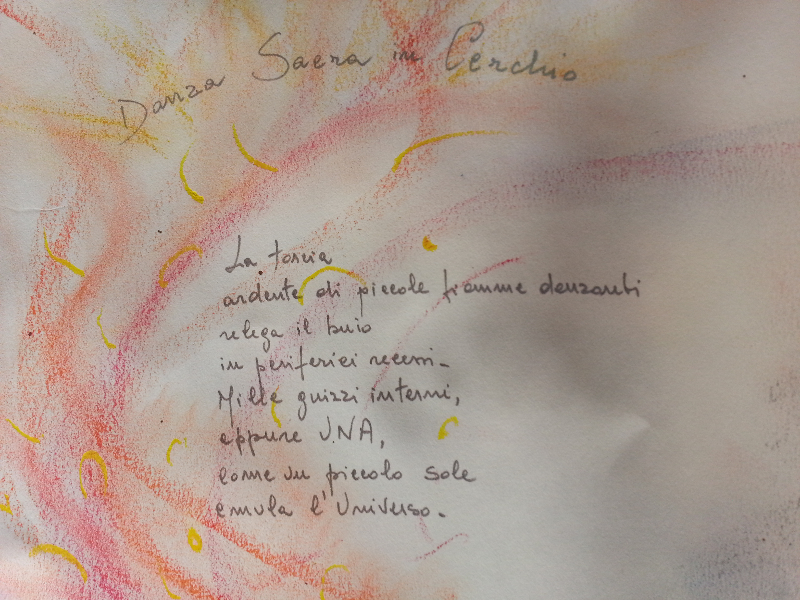 Danza Sacra in Cerchio
La torcia
ardente di piccole fiamme danzanti
relega il buio
in periferici recessi.
Mille guizzi interni,
eppure UNA,
come un piccolo sole
emula l'Universo.